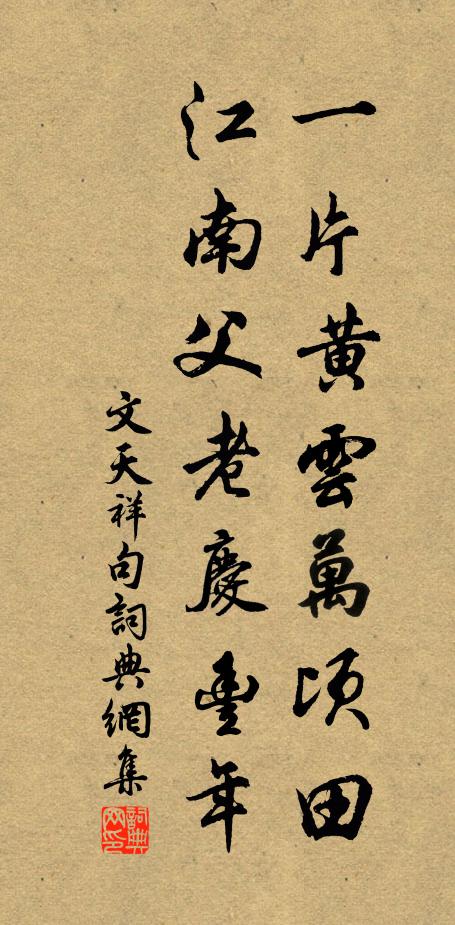 一片黄雲萬頃田
江南父老慶豐年
文天祥句詞典網集
詞典网印